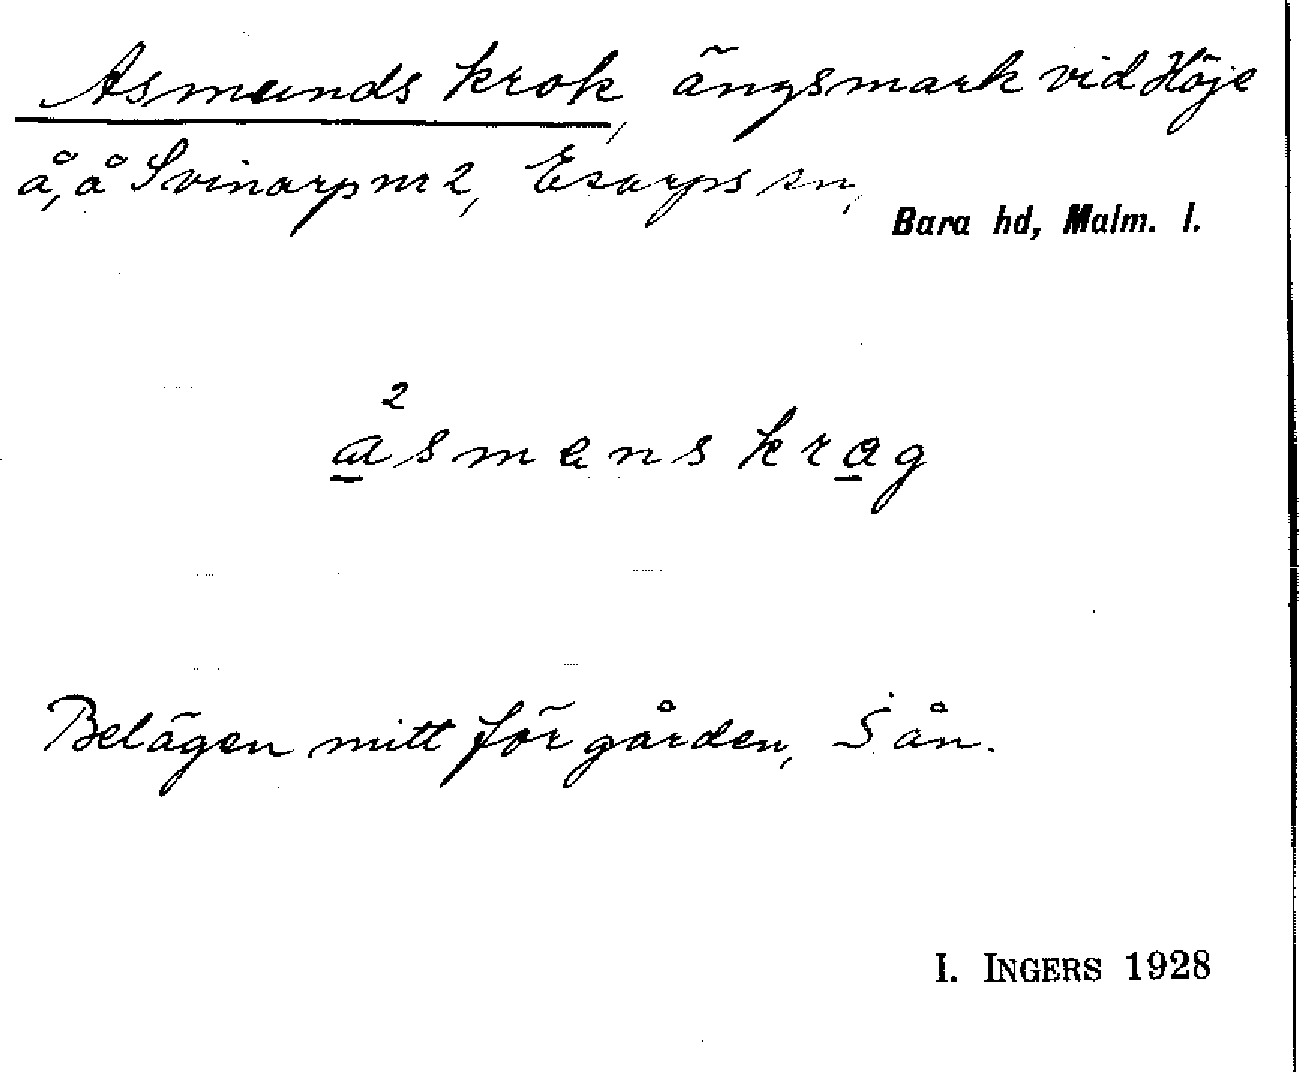 Asmunds krok, ängsmark vid Höje
å, å Svinarp nr 2, Esarps sn,
Bara hd, Malm. l.
2
asmans krag
Belägen mitt för gården, S ån.
I. INGERS 1928